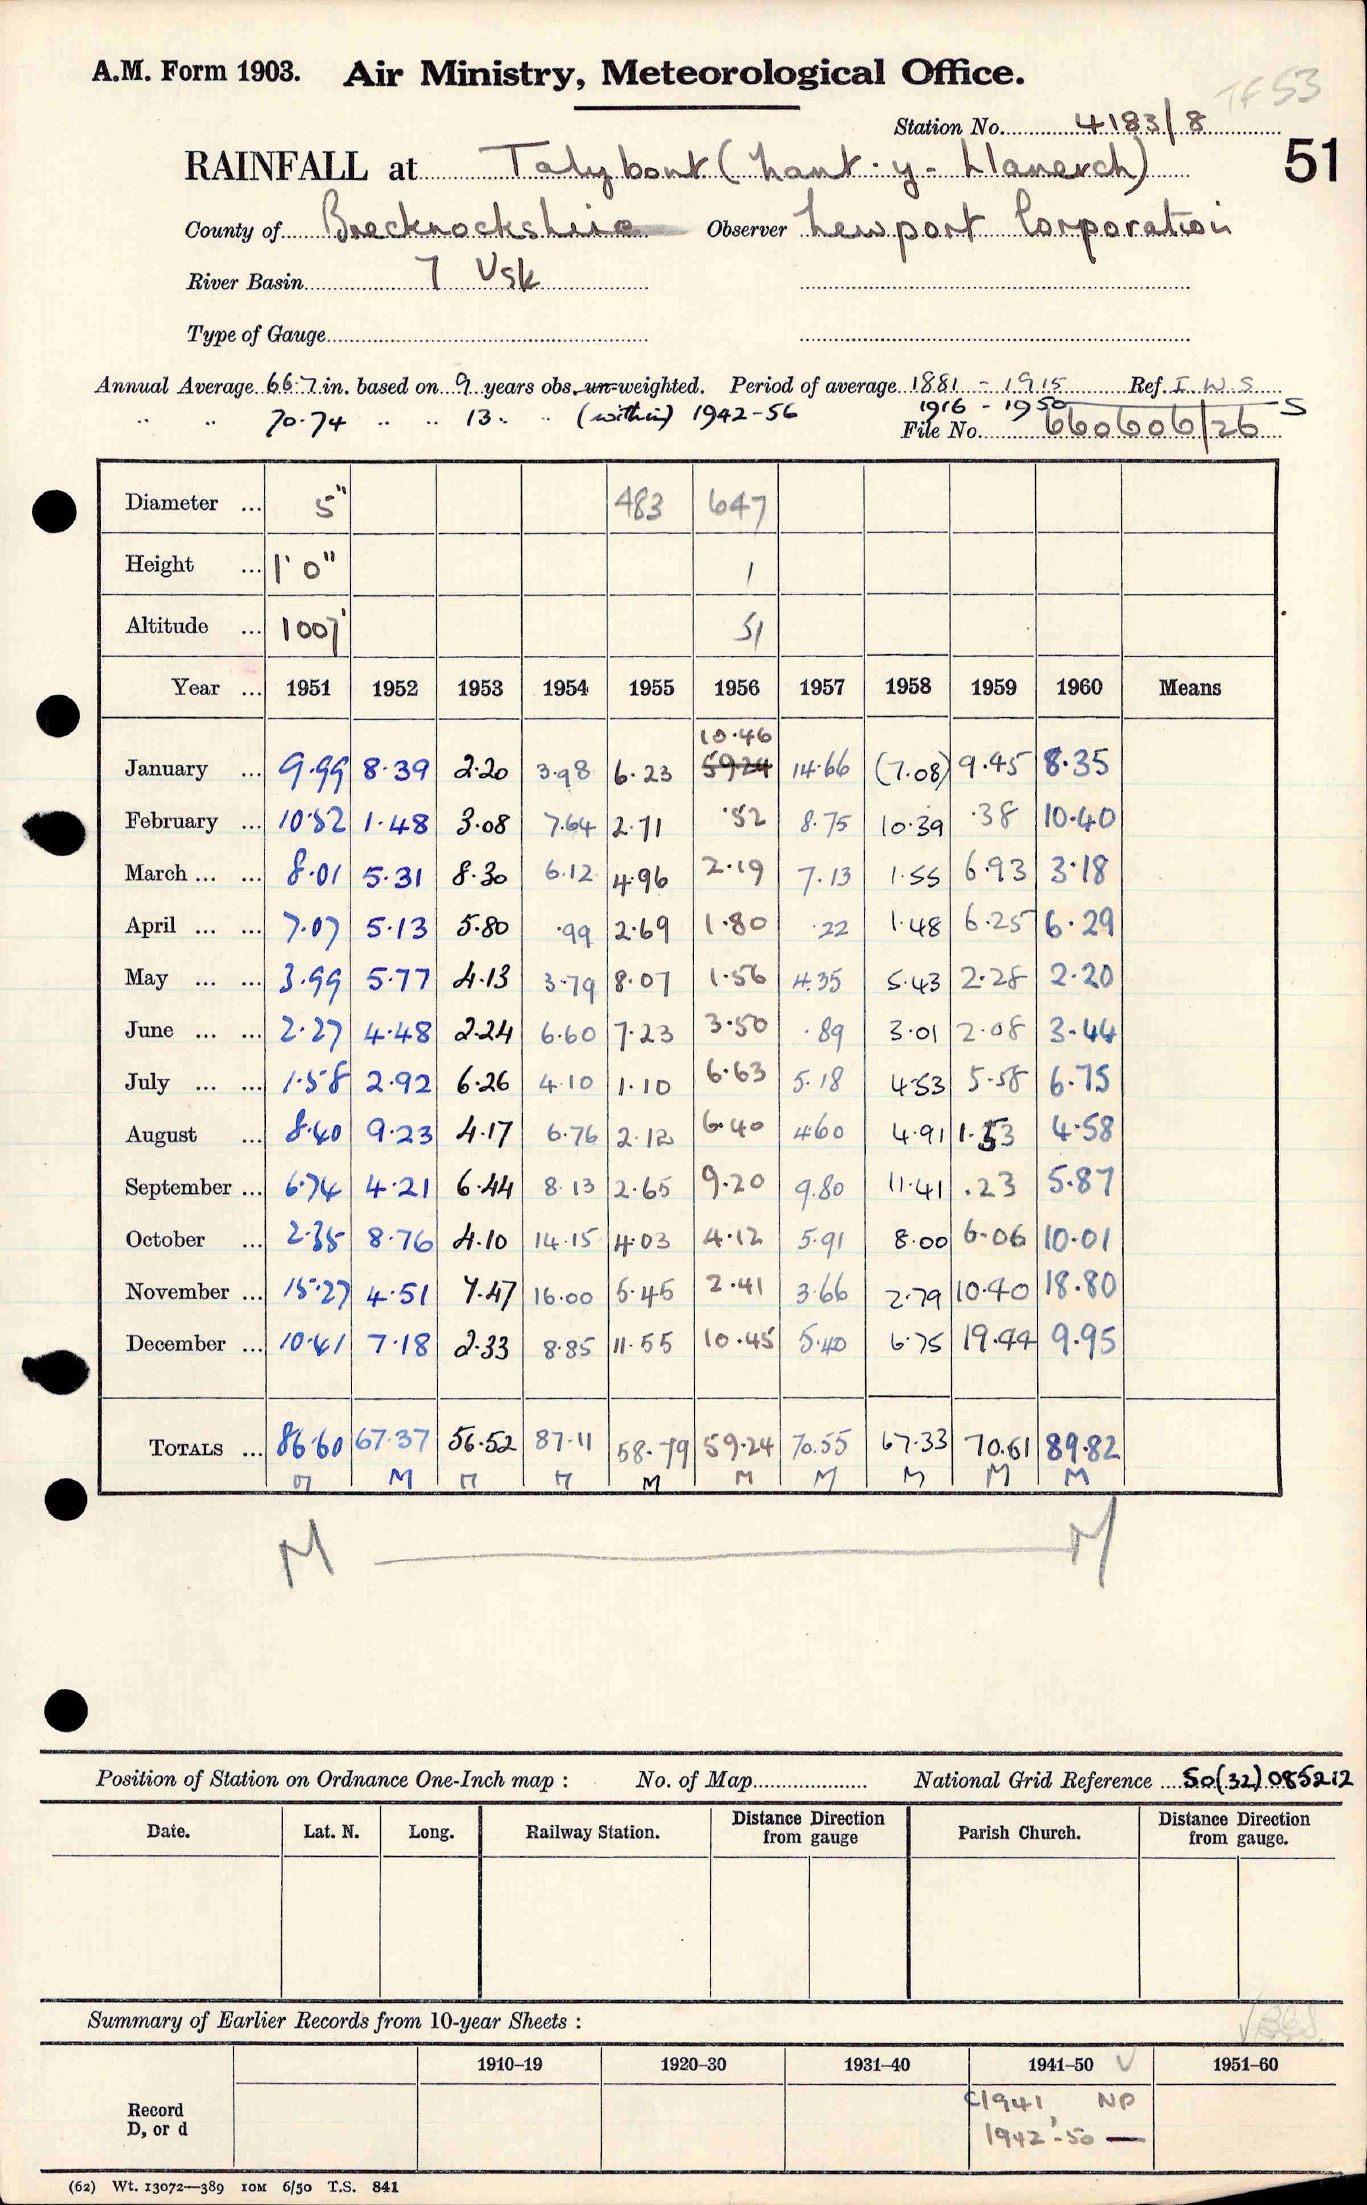 TF 53
A.M. Form 1903. Air Ministry, Meteorological Office.
Station No. 4183/8
51
RAINFALL at Talybont (Nant-y-Llanerch)
County of Brecknockshire Observer Newport Corporation
River Basin 7 Usk
Type of Gauge
Annual Average 66.7 in. based on 9 years obs. un-weighted. Period of average 1881 - 1915 Ref. I W S
" " 70.74 " " 13 " (within) 1942-56 1916 - 1950 S
File No. 660606/26
Diameter ... 5" 483 647
Height ... 1' 0" 1
Altitude ... 1007' 51
Year ... 1951 1952 1953 1954 1955 1956 1957 1958 1959 1960 Means
10.46
January ... 9.99 8.39 2.20 3.98 6.23 59.24 14.66 (7.08) 9.45 8.35
February ... 10.52 1.48 3.08 7.64 2.71 .52 8.75 10.39 .38 10.40
March ... ... 8.01 5.31 8.30 6.12 4.96 2.19 7.13 1.55 6.93 3.18
April ... ... 7.07 5.13 5.80 .99 2.69 1.80 .22 1.48 6.25 6.29
May ... ... 3.99 5.77 4.13 3.79 8.07 1.56 4.35 5.43 2.28 2.20
June ... ... 2.27 4.48 2.24 6.60 7.23 3.50 .89 3.01 2.08 3.44
July ... ... 1.58 2.92 6.26 4.10 1.10 6.63 5.18 4.53 5.58 6.75
August ... 8.40 9.23 4.17 6.76 2.12 6.40 4.60 4.91 1.53 4.58
September ... 6.74 4.21 6.44 8.13 2.65 9.20 9.80 11.41 .23 5.87
October ... 2.35 8.76 4.10 14.15 4.03 4.12 5.91 8.00 6.06 10.01
November ... 15.27 4.51 7.47 16.00 5.45 2.41 3.66 2.79 10.40 18.80
December ... 10.41 7.18 2.33 8.85 11.55 10.45 5.40 6.75 19.44 9.95
TOTALS ... 86.60 67.37 56.52 87.11 58.79 59.24 70.55 67.33 70.61 89.82
M M M M M M M M M M
M M
Position of Station on Ordnance One-Inch map : No. of Map National Grid Reference SO(32)085212
Date. Lat. N. Long. Railway Station. Distance Direction from gauge Parish Church. Distance Direction from gauge.
Summary of Earlier Records from 10-year Sheets :
1910–19 1920–30 1931–40 1941–50 1951–60
Record D, or d
C1941 NP
1942-50 —
(62) Wt. 13072—389 10M 6/50 T.S. 841